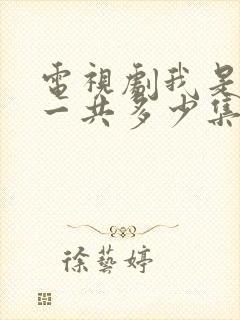 電視劇我是
一共多少集
徐藝婷